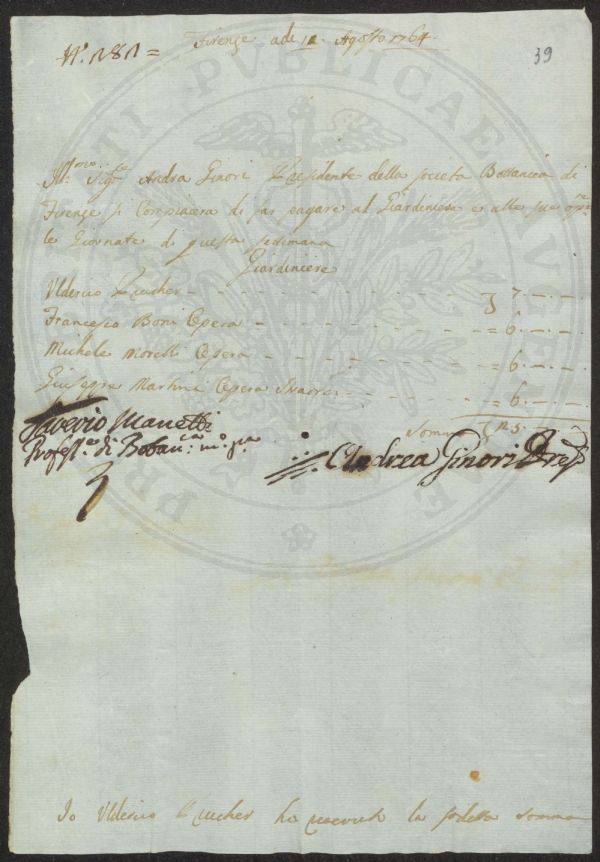 Nº. 282 =
Firenze adi 12 Agosto 1764.
39
Ill:mo Sig:re Andrea Ginori Presidente della società Bottanica di
Firenze si Compiacera di far pagare al Giardiniere e alle sue opere
le Giornate di questa settimana
Giardiniere
Ulderico Prucher - - - - - - 7 - . -
Francesco Boni Opera - - - - - - = 6. - . -
Michele Morelli Opera - - - - - - = 6. - . -
Giuseppe Martini Opera - - - = 6. - . -
Somma 25. - . -
Saverio Manetti
Profess:e di Botan:ca m:o p:a
Andrea Ginori Pres:
Io Ulderico Prucher ho ricevuto la sodetta somma
PUBLICAE